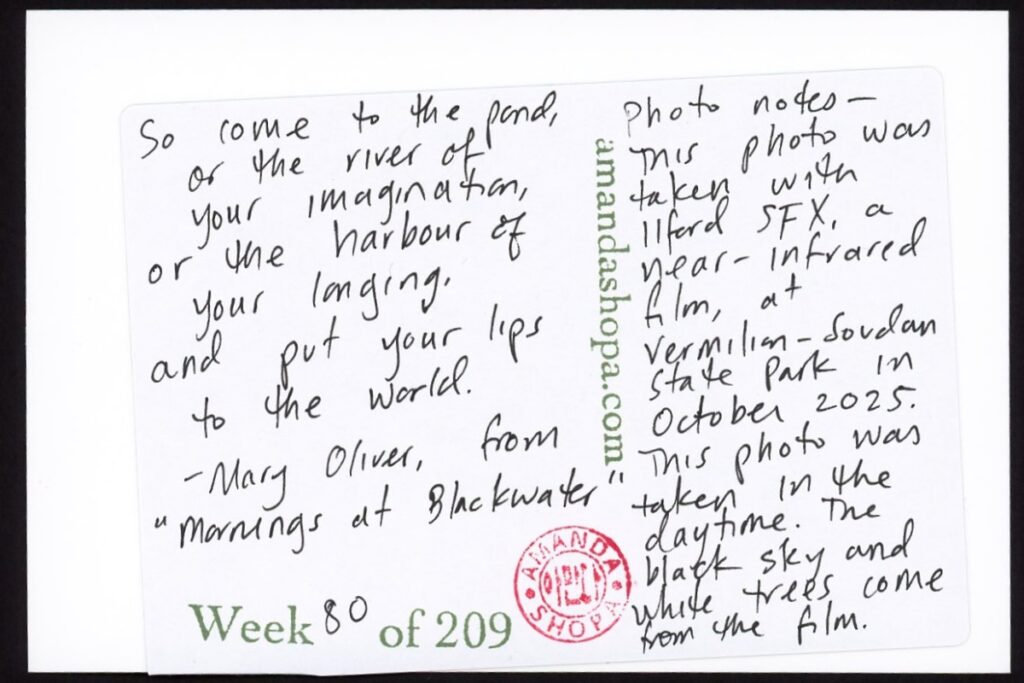 So come to the pond,
or the river of
your imagination,
or the harbour of
your longing,
and put your lips
to the world.
-Mary Oliver, from
"Mornings at Blackwater"
Week 80 of 209
amandashopa.com
AMANDA
SHOPA
Photo notes-
This photo was
taken with
Ilford SFX, a
near-infrared
film, at
Vermilion-Soudan
State Park in
October 2025.
This photo was
taken in the
daytime. The
black sky and
white trees come
from the film.